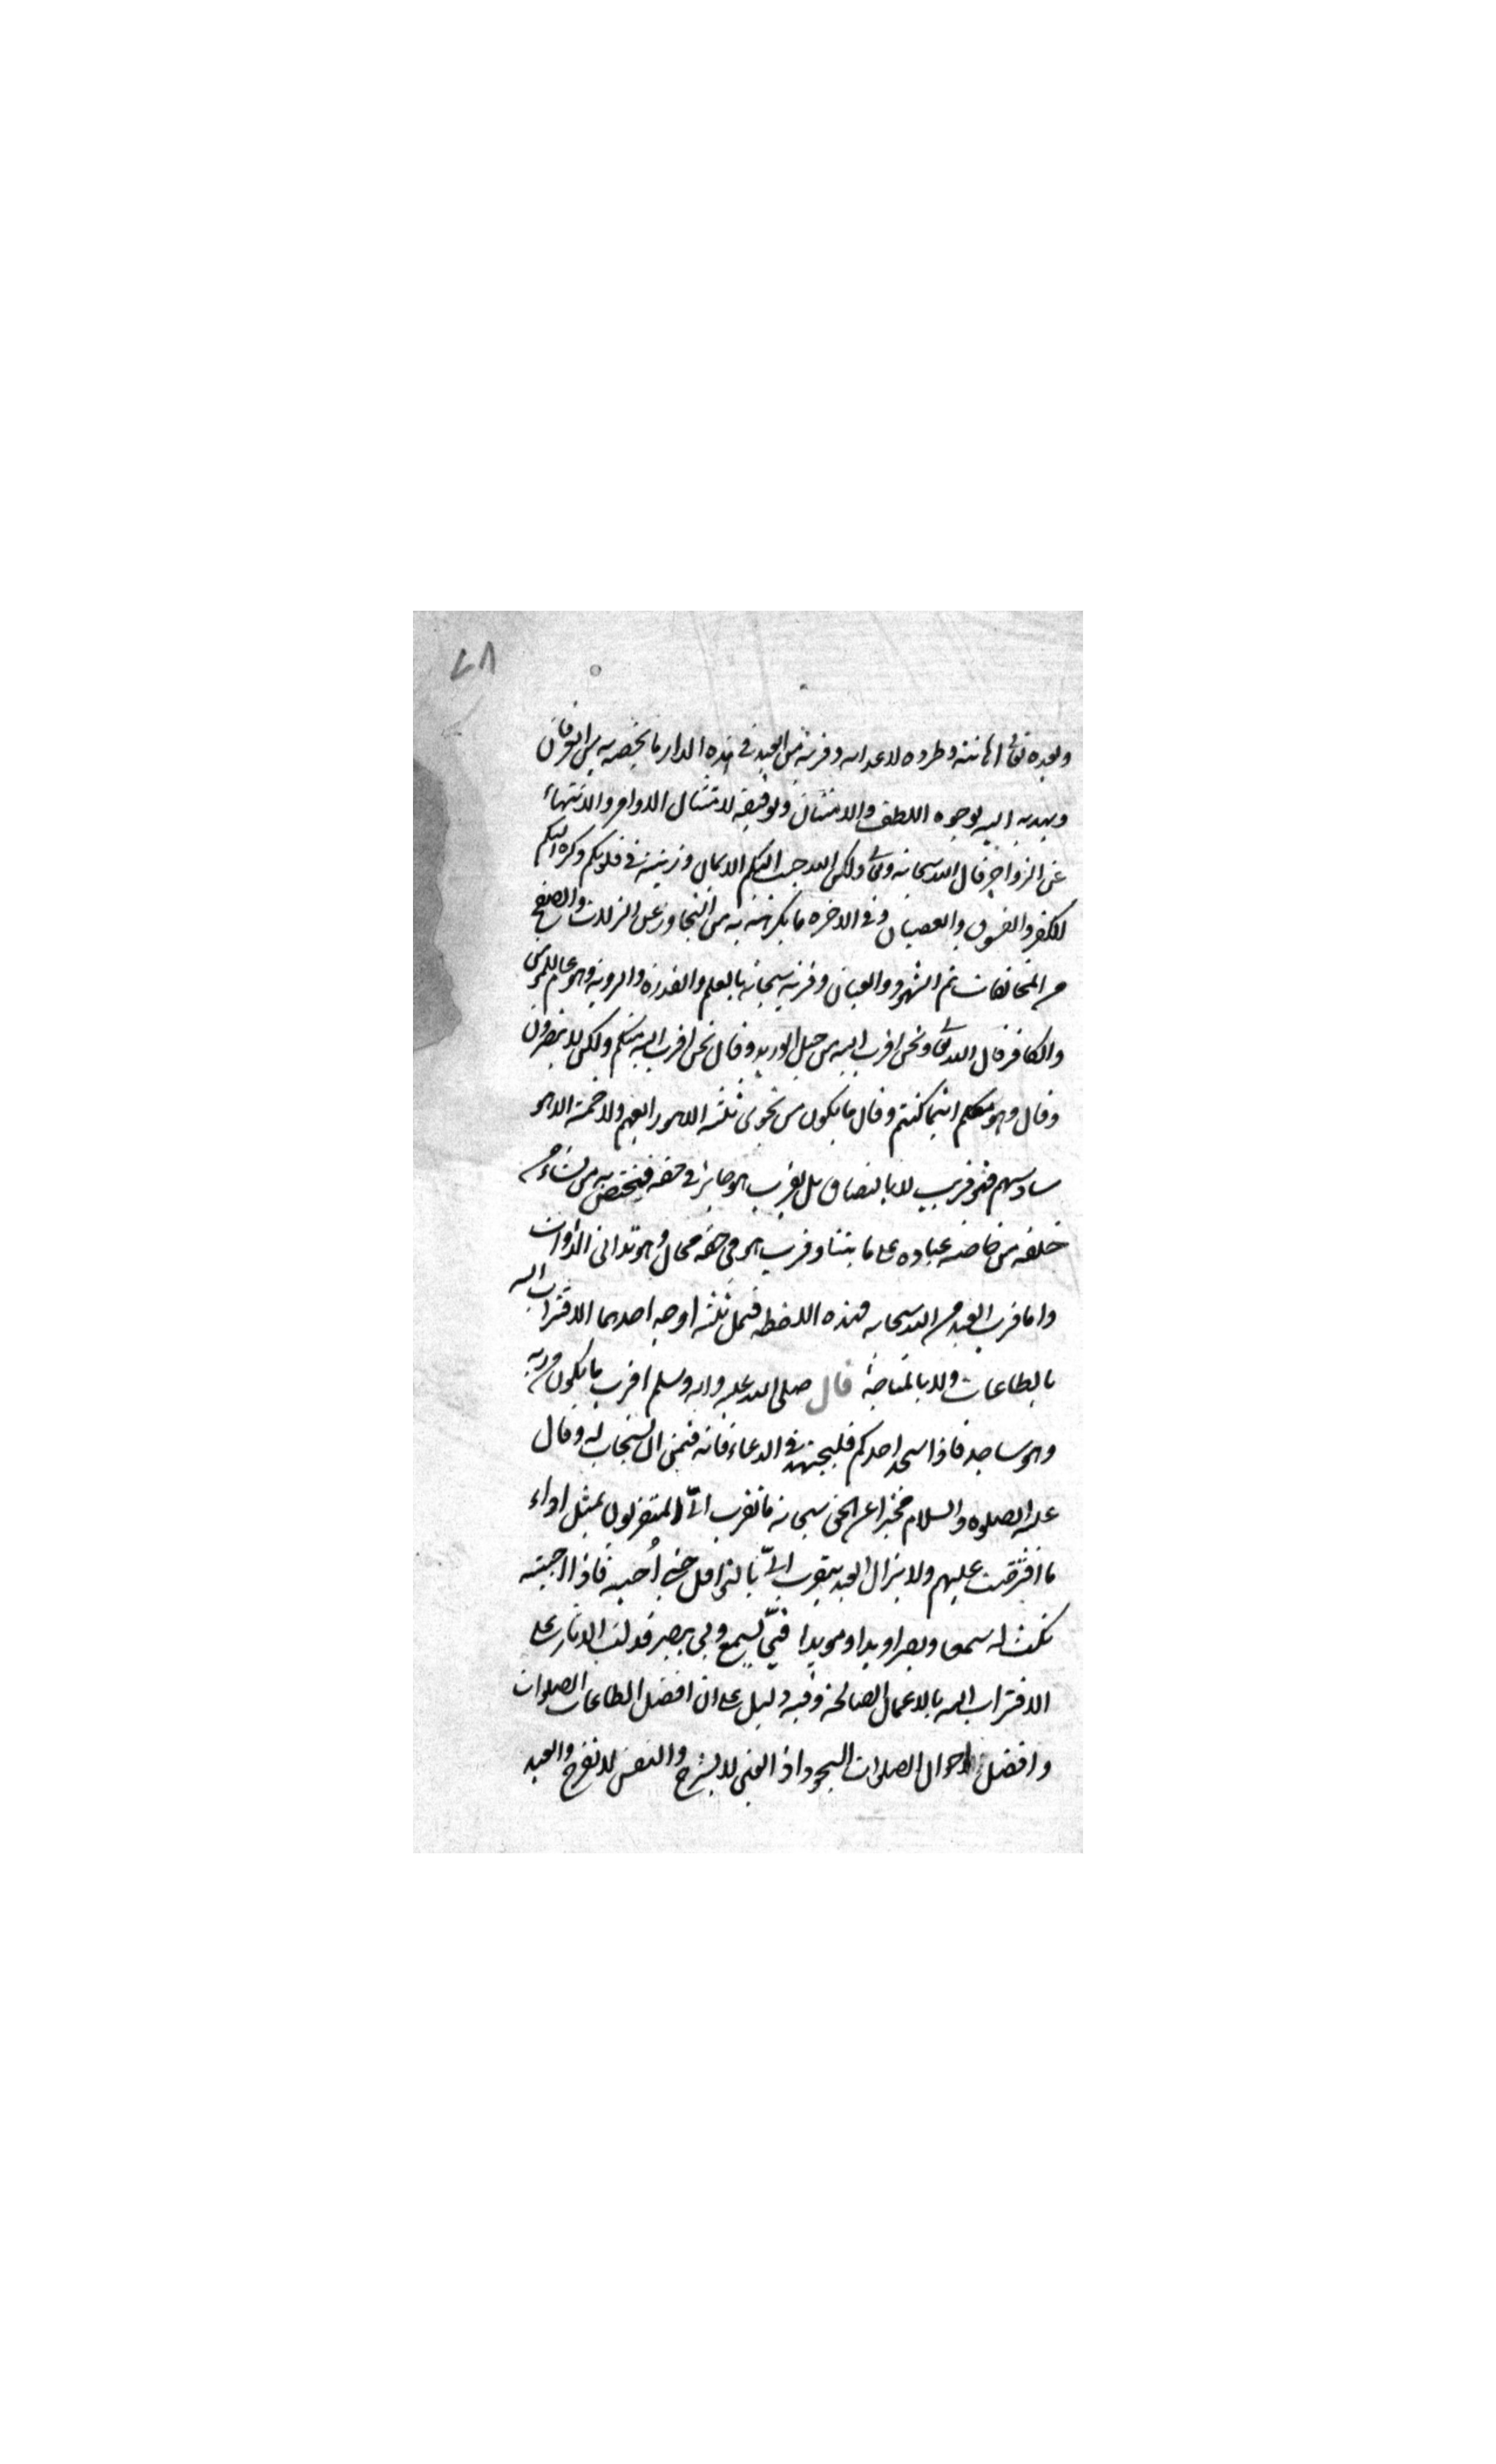 ٧٨
وبعده تعالى اهانته وطرده لاعدائه وقربه من العبد في هذه الدار ما يخصه به من العرفان
ويهديه اليه بوجوه اللطف والامتنان وتوفيقه لامتثال الاوامر والانتهاء
عن الزواجر قال الله سبحانه وتعالى ولكن الله حبب اليكم الايمان وزينه في قلوبكم وكره اليكم
الكفر والفسوق والعصيان وفي الاخرة ما يكرمه به من التجاوز عن الزلات والصفح
من المخالفات ثم الشهود والعيان وقربه سبحانه بالعلم والقدرة والروية وهو عام للمومن
والكافر قال الله تعالى ونحن اقرب اليه من حبل الوريد وقال نحن اقرب اليه منكم ولكن لا تبصرون
وقال وهو معكم اينما كنتم وقال ما يكون من نجوى ثلثة الا هو رابعهم ولا خمسة الا هو
سادسهم فهو قريب لا بالتصاق بل بقرب هو جايز في حقه فيختص به من يشاء من
خلقه من خاصة عباده على ما بينا وقرب هو في حقه محال وهو تداني الذوات
واما قرب العبد من الله سبحانه فهذه اللفظه تحمل ثلثة اوجه احدها الاقتراب اليه
بالطاعات ولا بالمناجة قال صلى الله عليه واله وسلم اقرب ما يكون من ربه
وهو ساجد فاذا سجد احدكم فليجتهد في الدعاء فانه قمن ان يستجاب له وقال
عليه الصلوة والسلام مخبرا عن الحق سبحانه ما تقرب الىّ المتقربون بمثل اداء
ما افترضت عليهم ولا يزال العبد يتقرب الىّ بالنوافل حتى اُحبه فاذا احببته
كنت له سمعا وبصرا ويدا ومويدا فبي يسمع وبي يبصر فدلت الاثار على
الاقتراب اليه بالاعمال الصالحة وفيه دليل على ان افضل الطاعات الصلوات
وافضل احوال الصلوات السجود اذ الغني لا يشرح والنفس لا تفرح والعبد